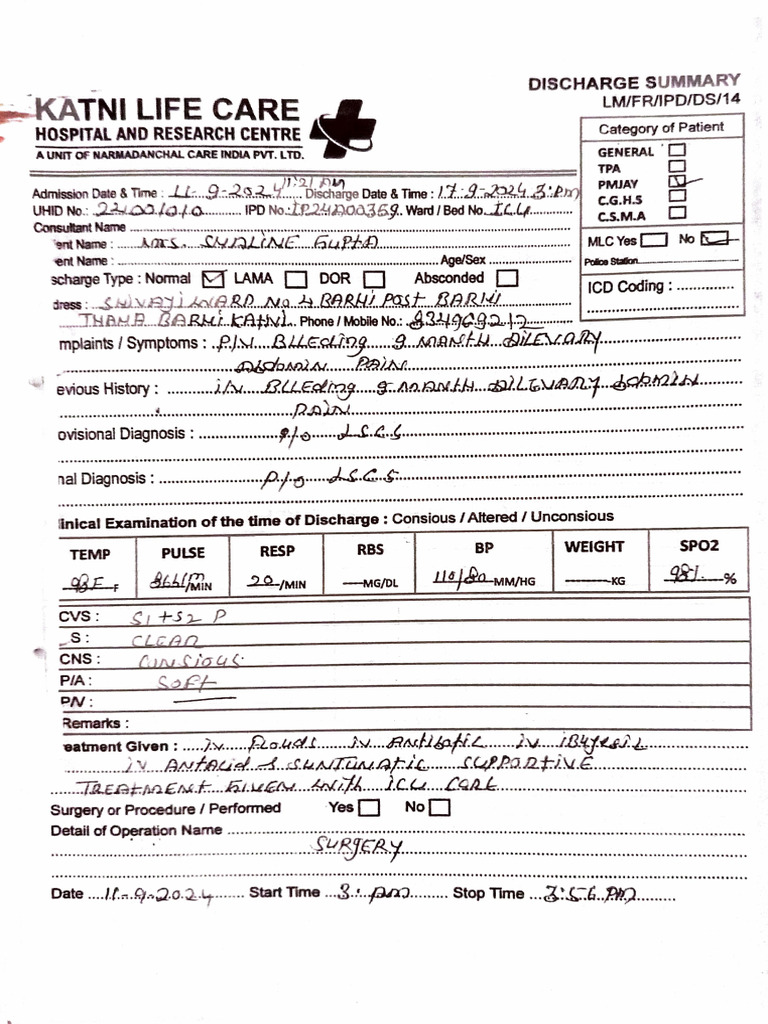 DISCHARGE SUMMARY
LM/FR/IPD/DS/14
KATNI LIFE CARE
HOSPITAL AND RESEARCH CENTRE
A UNIT OF NARMADANCHAL CARE INDIA PVT. LTD.
Category of Patient
GENERAL
TPA
PMJAY
C.G.H.S
C.S.M.A
MLC Yes No
Police Station
ICD Coding :
Admission Date & Time : 11-9-2024 11:21 AM Discharge Date & Time : 17-9-2024 3:PM
UHID No.: 22001010 IPD No.: IP24A00359 Ward / Bed No. ICU
Consultant Name
ent Name : MRS. SHALINE GUPTA
ent Name : Age/Sex
scharge Type : Normal LAMA DOR Absconded
dress : SHIVAJI WARD NO 4 BARHI POST BARHI
THANA BARHI KATNI Phone / Mobile No.:
mplaints / Symptoms : P/V BLLEding 9 MANTH DILEVARY
Abdomin PAIN
evious History : I/V BLLEding 9 MANTH DILEVARY
PAIN
ovisional Diagnosis : P/O LSCS
nal Diagnosis : P/O LSCS
linical Examination of the time of Discharge : Consious / Altered / Unconsious
TEMP PULSE RESP RBS BP WEIGHT SPO2
98F F 86b/m /MIN 20 /MIN MG/DL 110/80 MM/HG KG 98% %
CVS : S1+S2 P
S : CLEAR
CNS : CONSIOUS
P/A : SOFT
P/V :
Remarks :
eatment Given : IV FLOUDS IV ANTIBATIC IV
IV ANTACID & SUPPORTIVE
TREATMENT GIVEN WITH ICU CARE
Surgery or Procedure / Performed Yes No
Detail of Operation Name
SURGERY
Date 11-9-2024 Start Time 3: PM Stop Time 3:56 PM